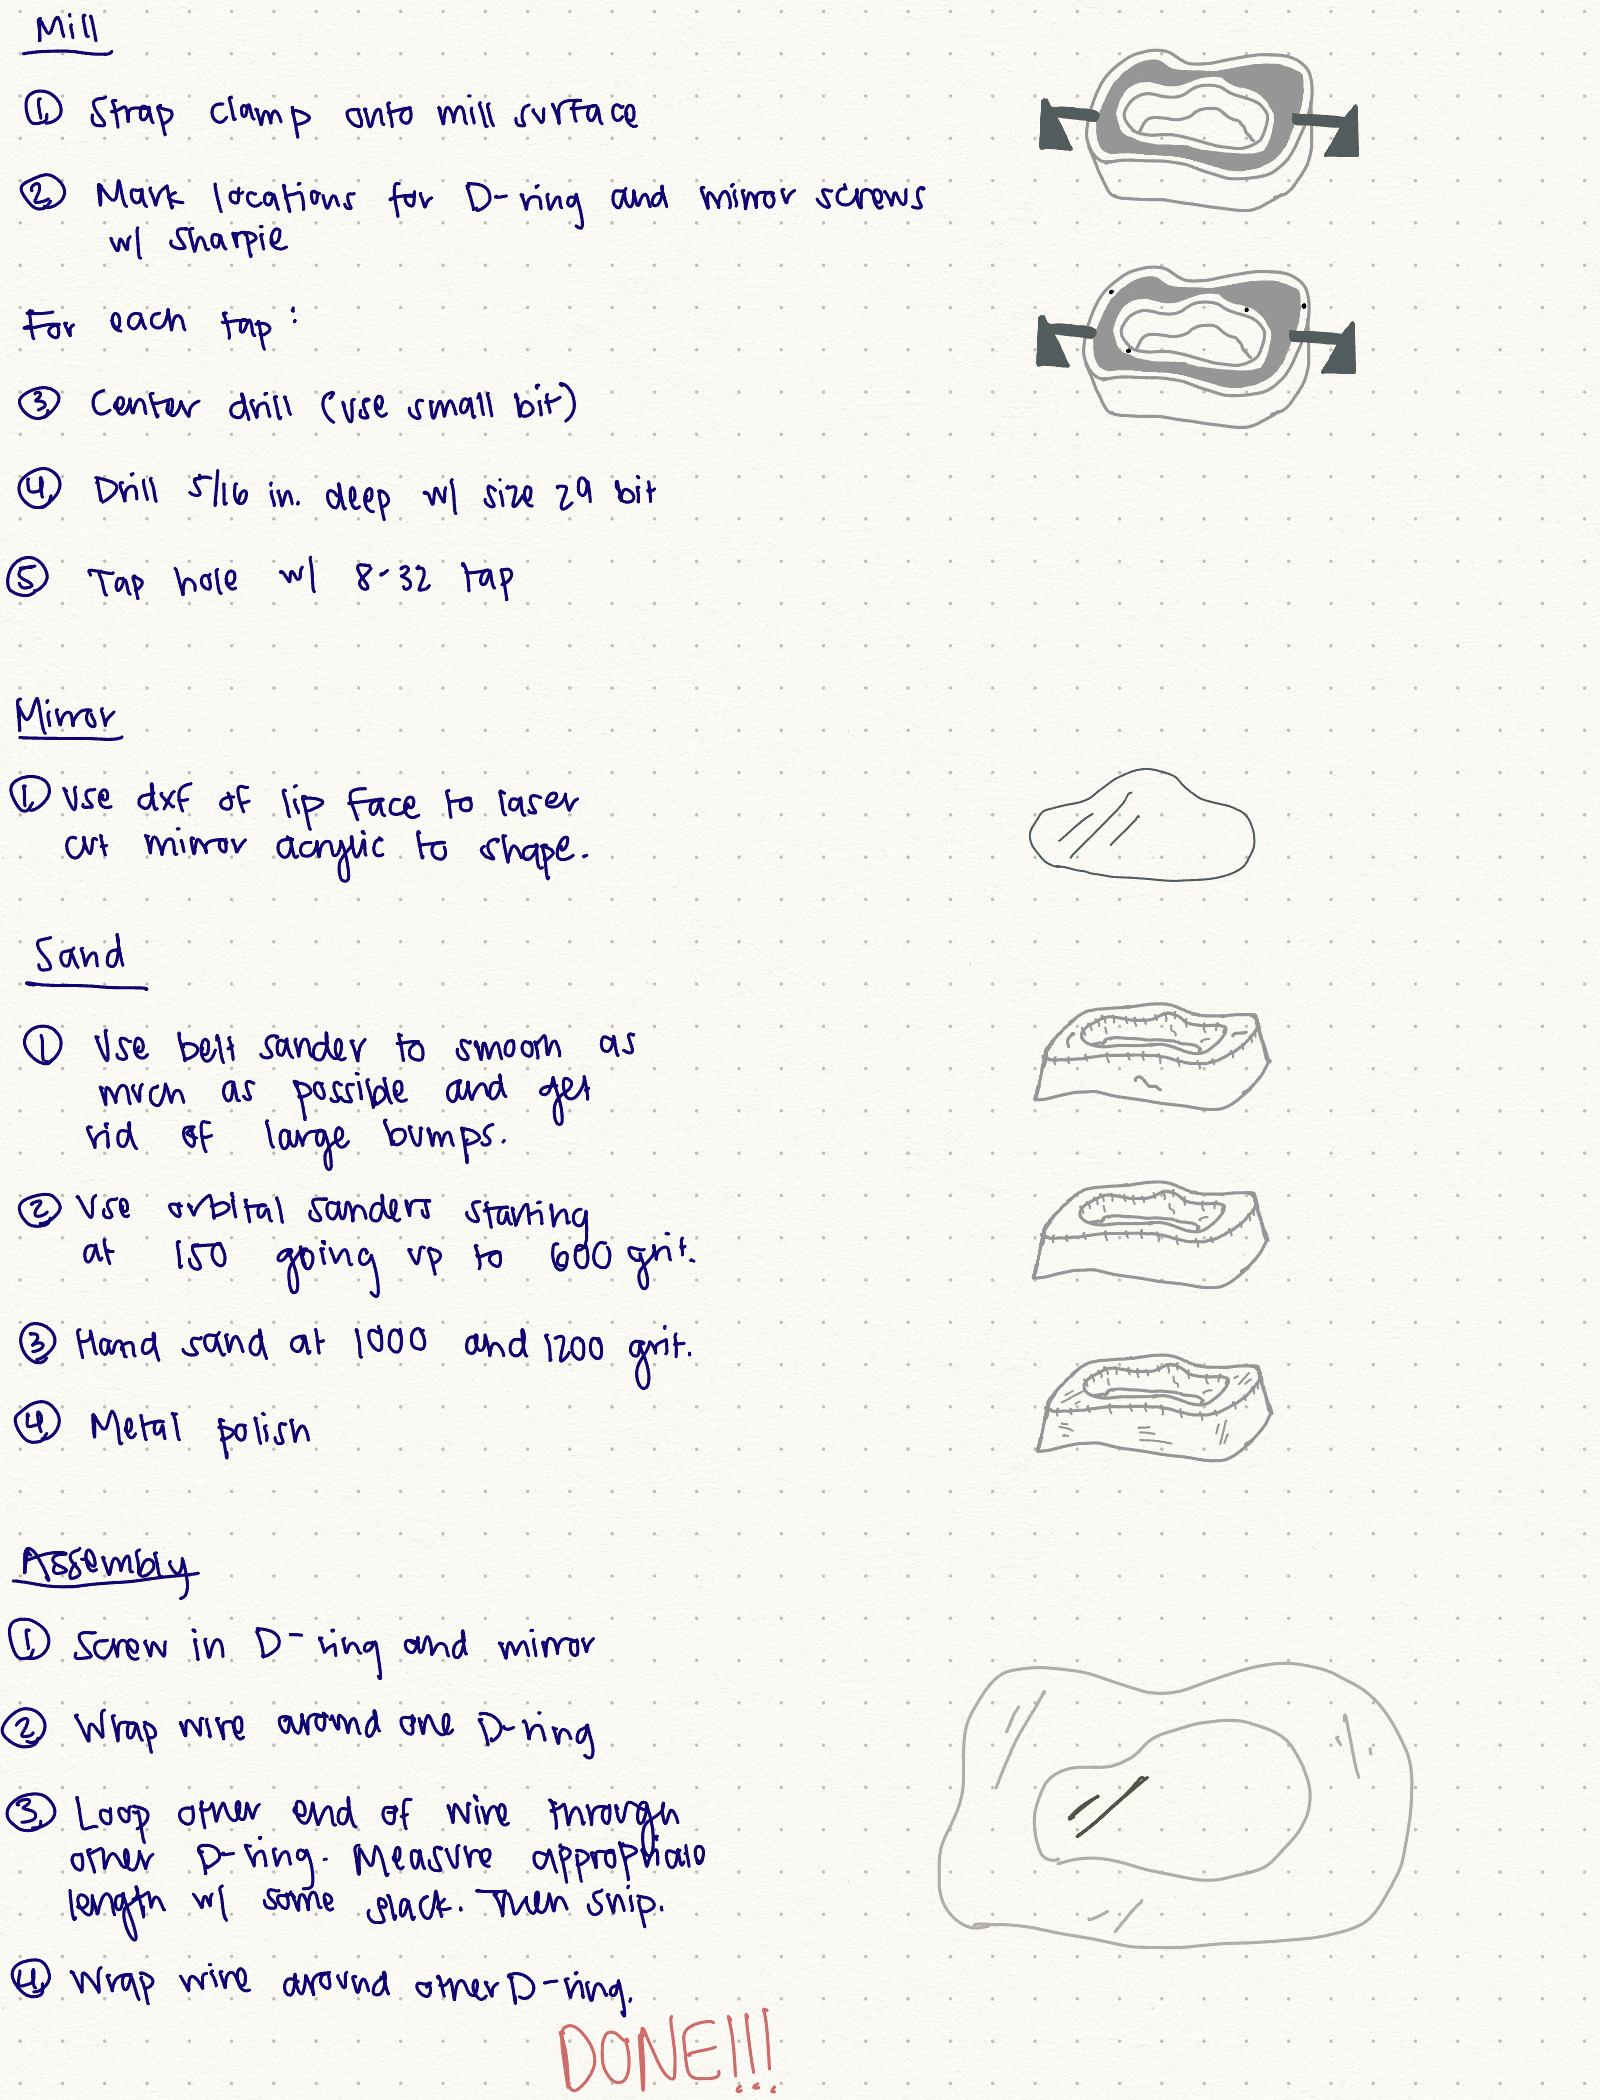 Mill
① Strap clamp onto mill surface
② Mark locations for D-ring and mirror screws
w/ sharpie
For each tap:
③ Center drill (use small bit)
④ Drill 5/16 in. deep w/ size 29 bit
⑤ Tap hole w/ 8-32 tap
Mirror
① Use dxf of lip face to laser
cut mirror acrylic to shape.
Sand
① Use belt sander to smooth as
much as possible and get
rid of large bumps.
② Use orbital sanders starting
at 150 going up to 600 grit.
③ Hand sand at 1000 and 1200 grit.
④ Metal polish
Assembly
① Screw in D-ring and mirror
② Wrap wire around one D-ring
③ Loop other end of wire through
other D-ring. Measure appropriate
length w/ some slack. Then snip.
④ Wrap wire around other D-ring.
DONE!!!